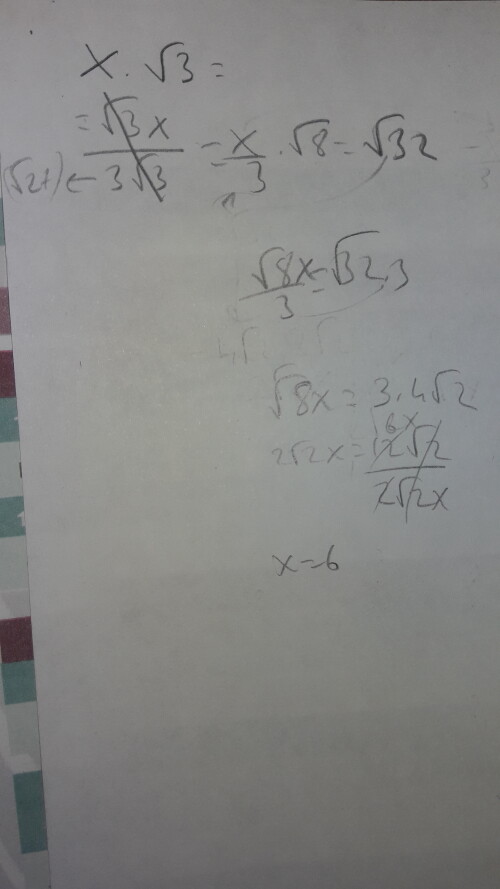 x · √3 =
= √3x / 3√3 = x/3 · √8 = √32
(√27) ←
√8x / 3 = √32 · 3
√8x = 3 · 4√2
2√2x = 12√2 / 2√2x
6x
x = 6